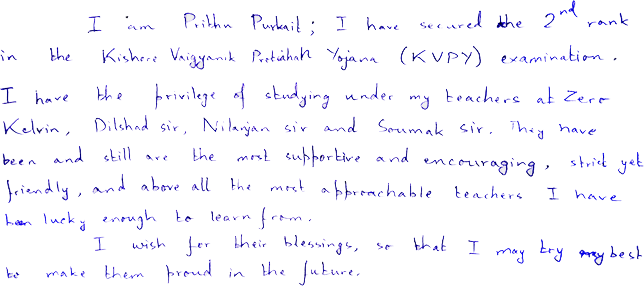 I am Prithu Purkait; I have secured the 2nd rank
in the Kishore Vaigyanik Protsahan Yojana (KVPY) examination.
I have the privilege of studying under my teachers at Zero
Kelvin, Dilshad sir, Nilanjan sir and Soumak sir. They have
been and still are the most supportive and encouraging, strict yet
friendly, and above all the most approachable teachers I have
been lucky enough to learn from.
I wish for their blessings, so that I may try my best
to make them proud in the future.